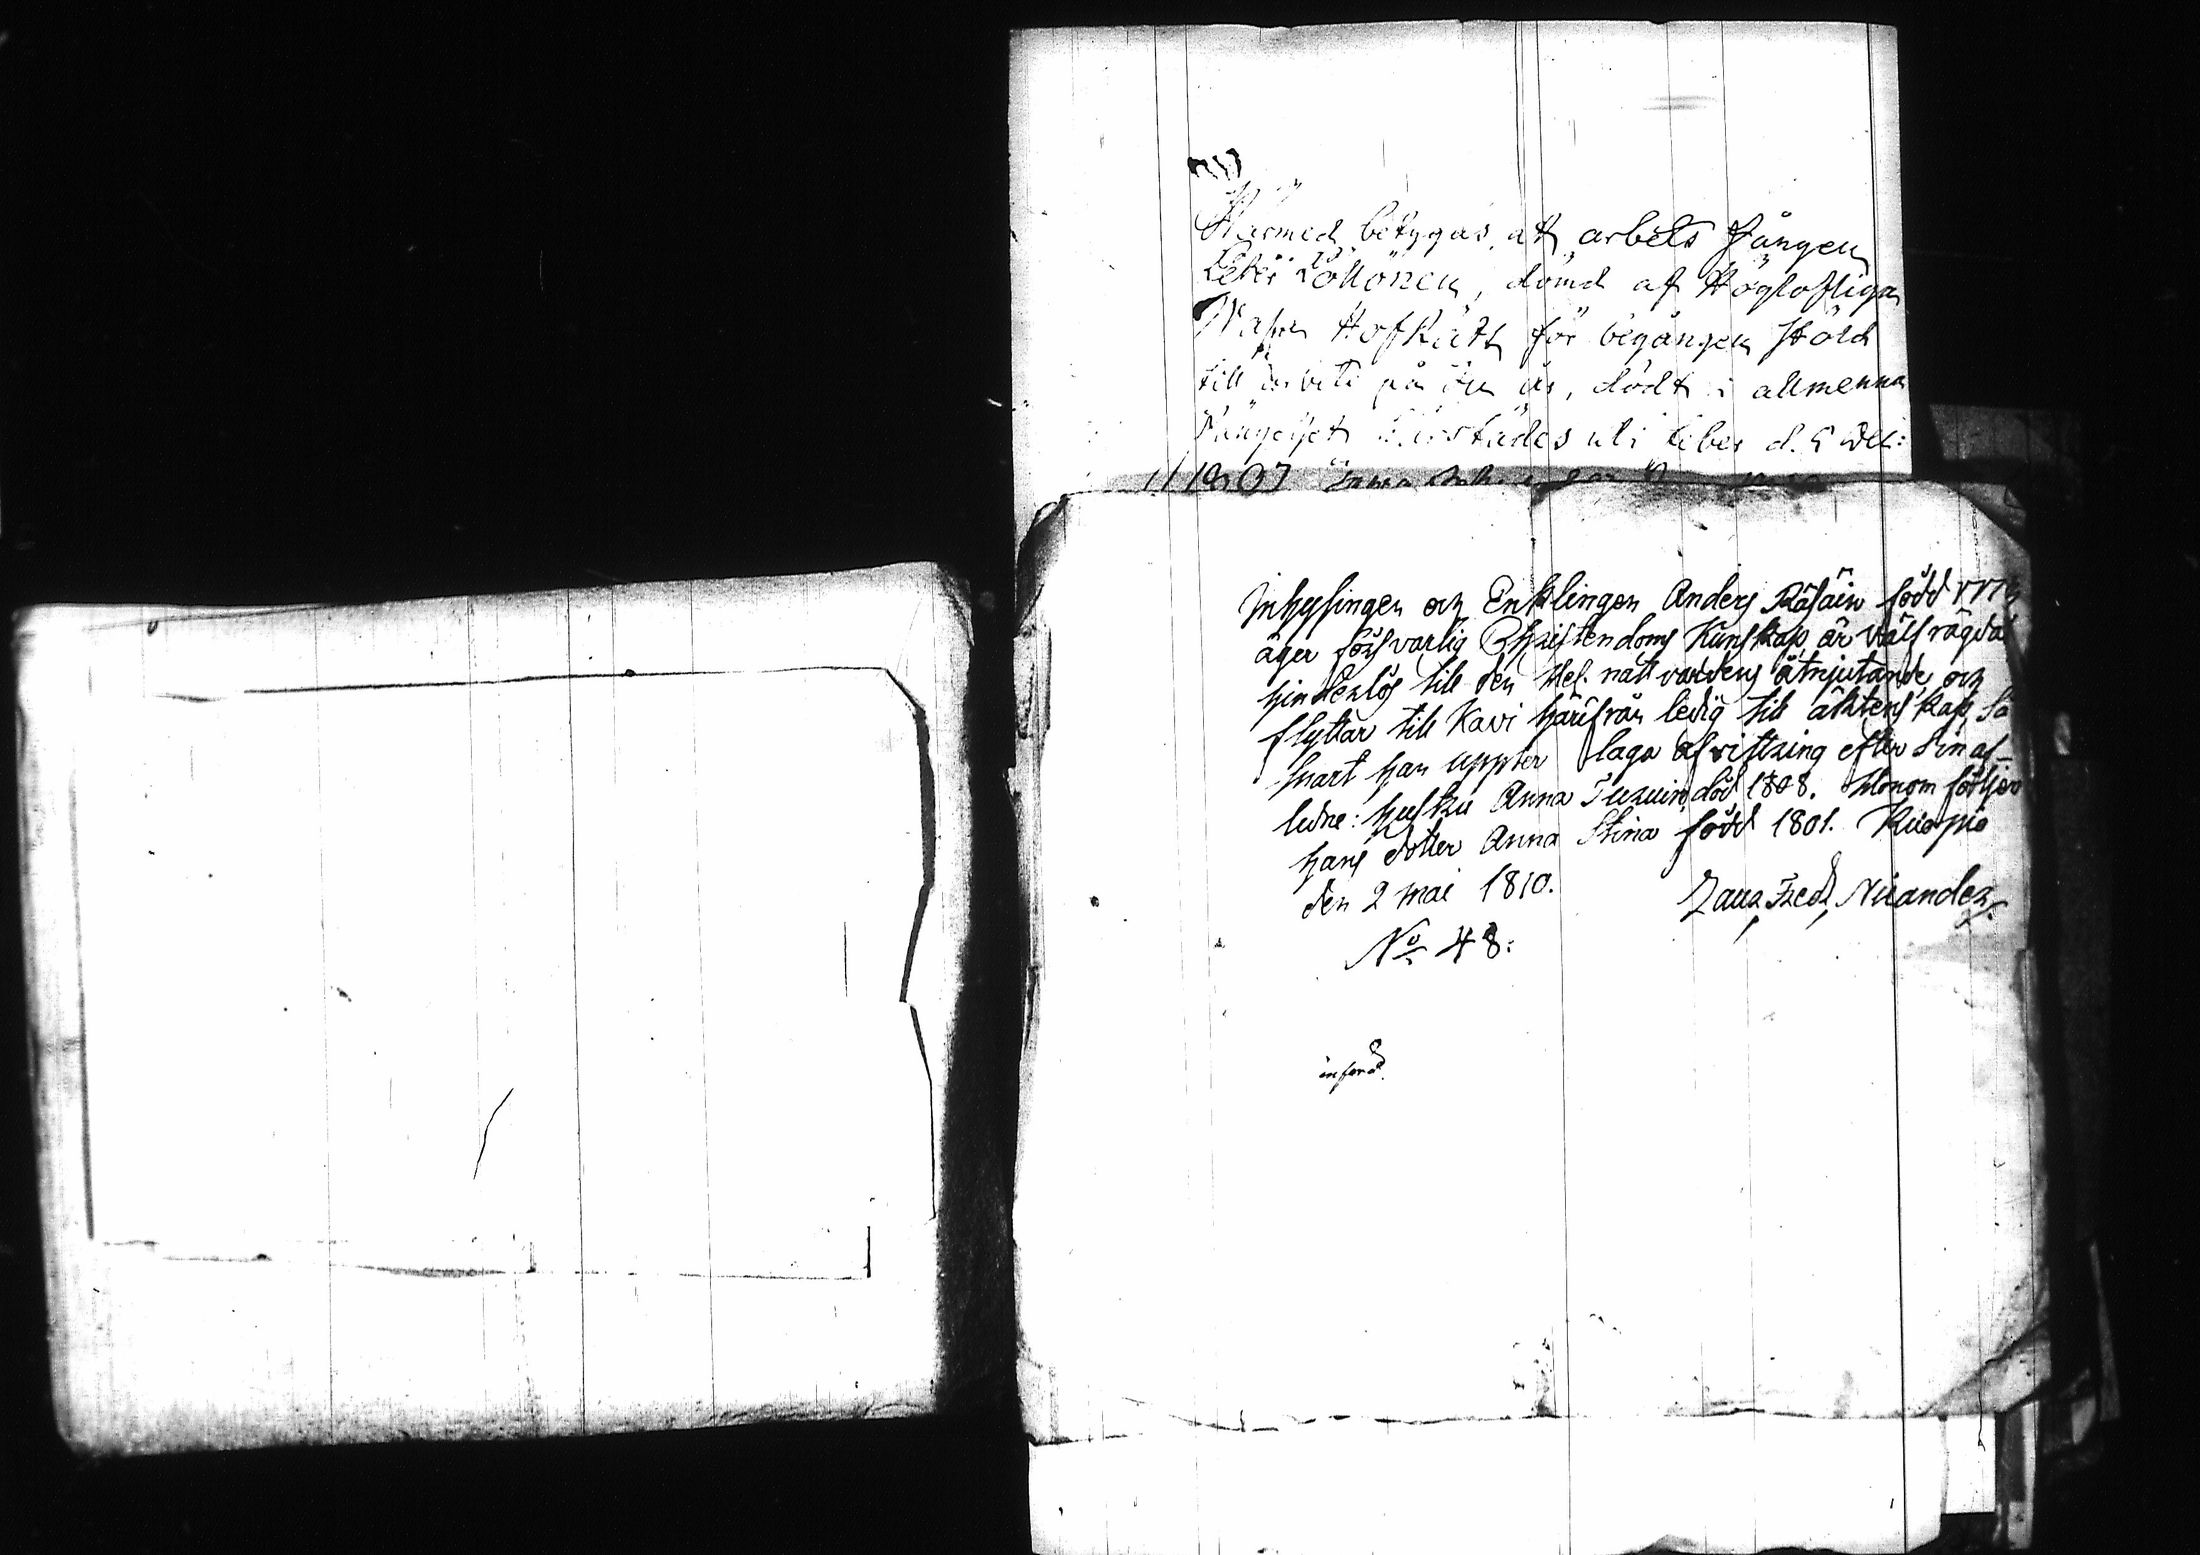 Härmed betygas, at arbets fången
Peter Löllönen, dömd af Höglofliga
Wasa HofRätt för begången stöld
till arbete på års, dödt i allmenna
Fängelset härstädes uti feber d. 5 Dec:
Inhysingen och Enklingen Anders Räsäin född 177
äger försvarlig Christendoms Kunskap, är välfrägdad
hinderlös till den Hel. nattvardens åtnjutande, och
flyttar till Kavi härifrån ledig till äktenskap, så
snart han uppter laga afvittring efter sin af-
ledne: hustru Anna Turuin, död 1808. Honom följer
hans dotter Anna Stina född 1801. Kuopio
den 2 mai 1810. Laur. Fredr. Nicander.
No 48:
införd.